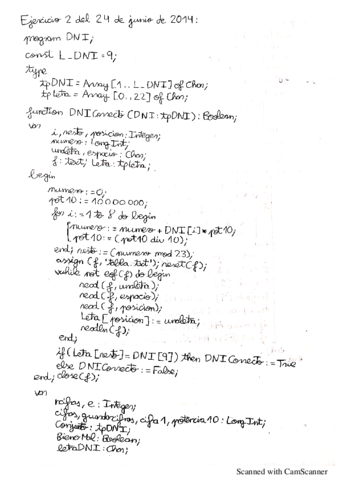 Ejercicio 2 del 24 de junio de 2014:
program DNI;
const L_DNI = 9;
type
tpDNI = Array [1..L_DNI] of Char;
tpLetra = Array [0..22] of Char;
function DNICorrecto (DNI: tpDNI): Boolean;
var
i, resto, posicion: Integer;
numero: LongInt;
unaletra, espacio: Char;
f: text; Letra: tpLetra;
begin
numero := 0;
pot10 := 10000000;
for i := 1 to 8 do begin
numero := numero + DNI[i] * pot10;
pot10 := (pot10 div 10);
end; resto := (numero mod 23);
assign (f, 'tabla.txt'); reset(f);
while not eof(f) do begin
read (f, unaletra);
read (f, espacio);
read (f, posicion);
Letra [posicion] := unaletra;
readln(f);
end;
if (Letra [resto] = DNI [9]) then DNICorrecto := True
else DNICorrecto := False;
end; close(f);
var
ncifras, e: Integer;
cifras, guardacifras, cifra1, potencia10: LongInt;
Conjunto: tpDNI;
BienoMal: Boolean;
letraDNI: Char;
Scanned with CamScanner